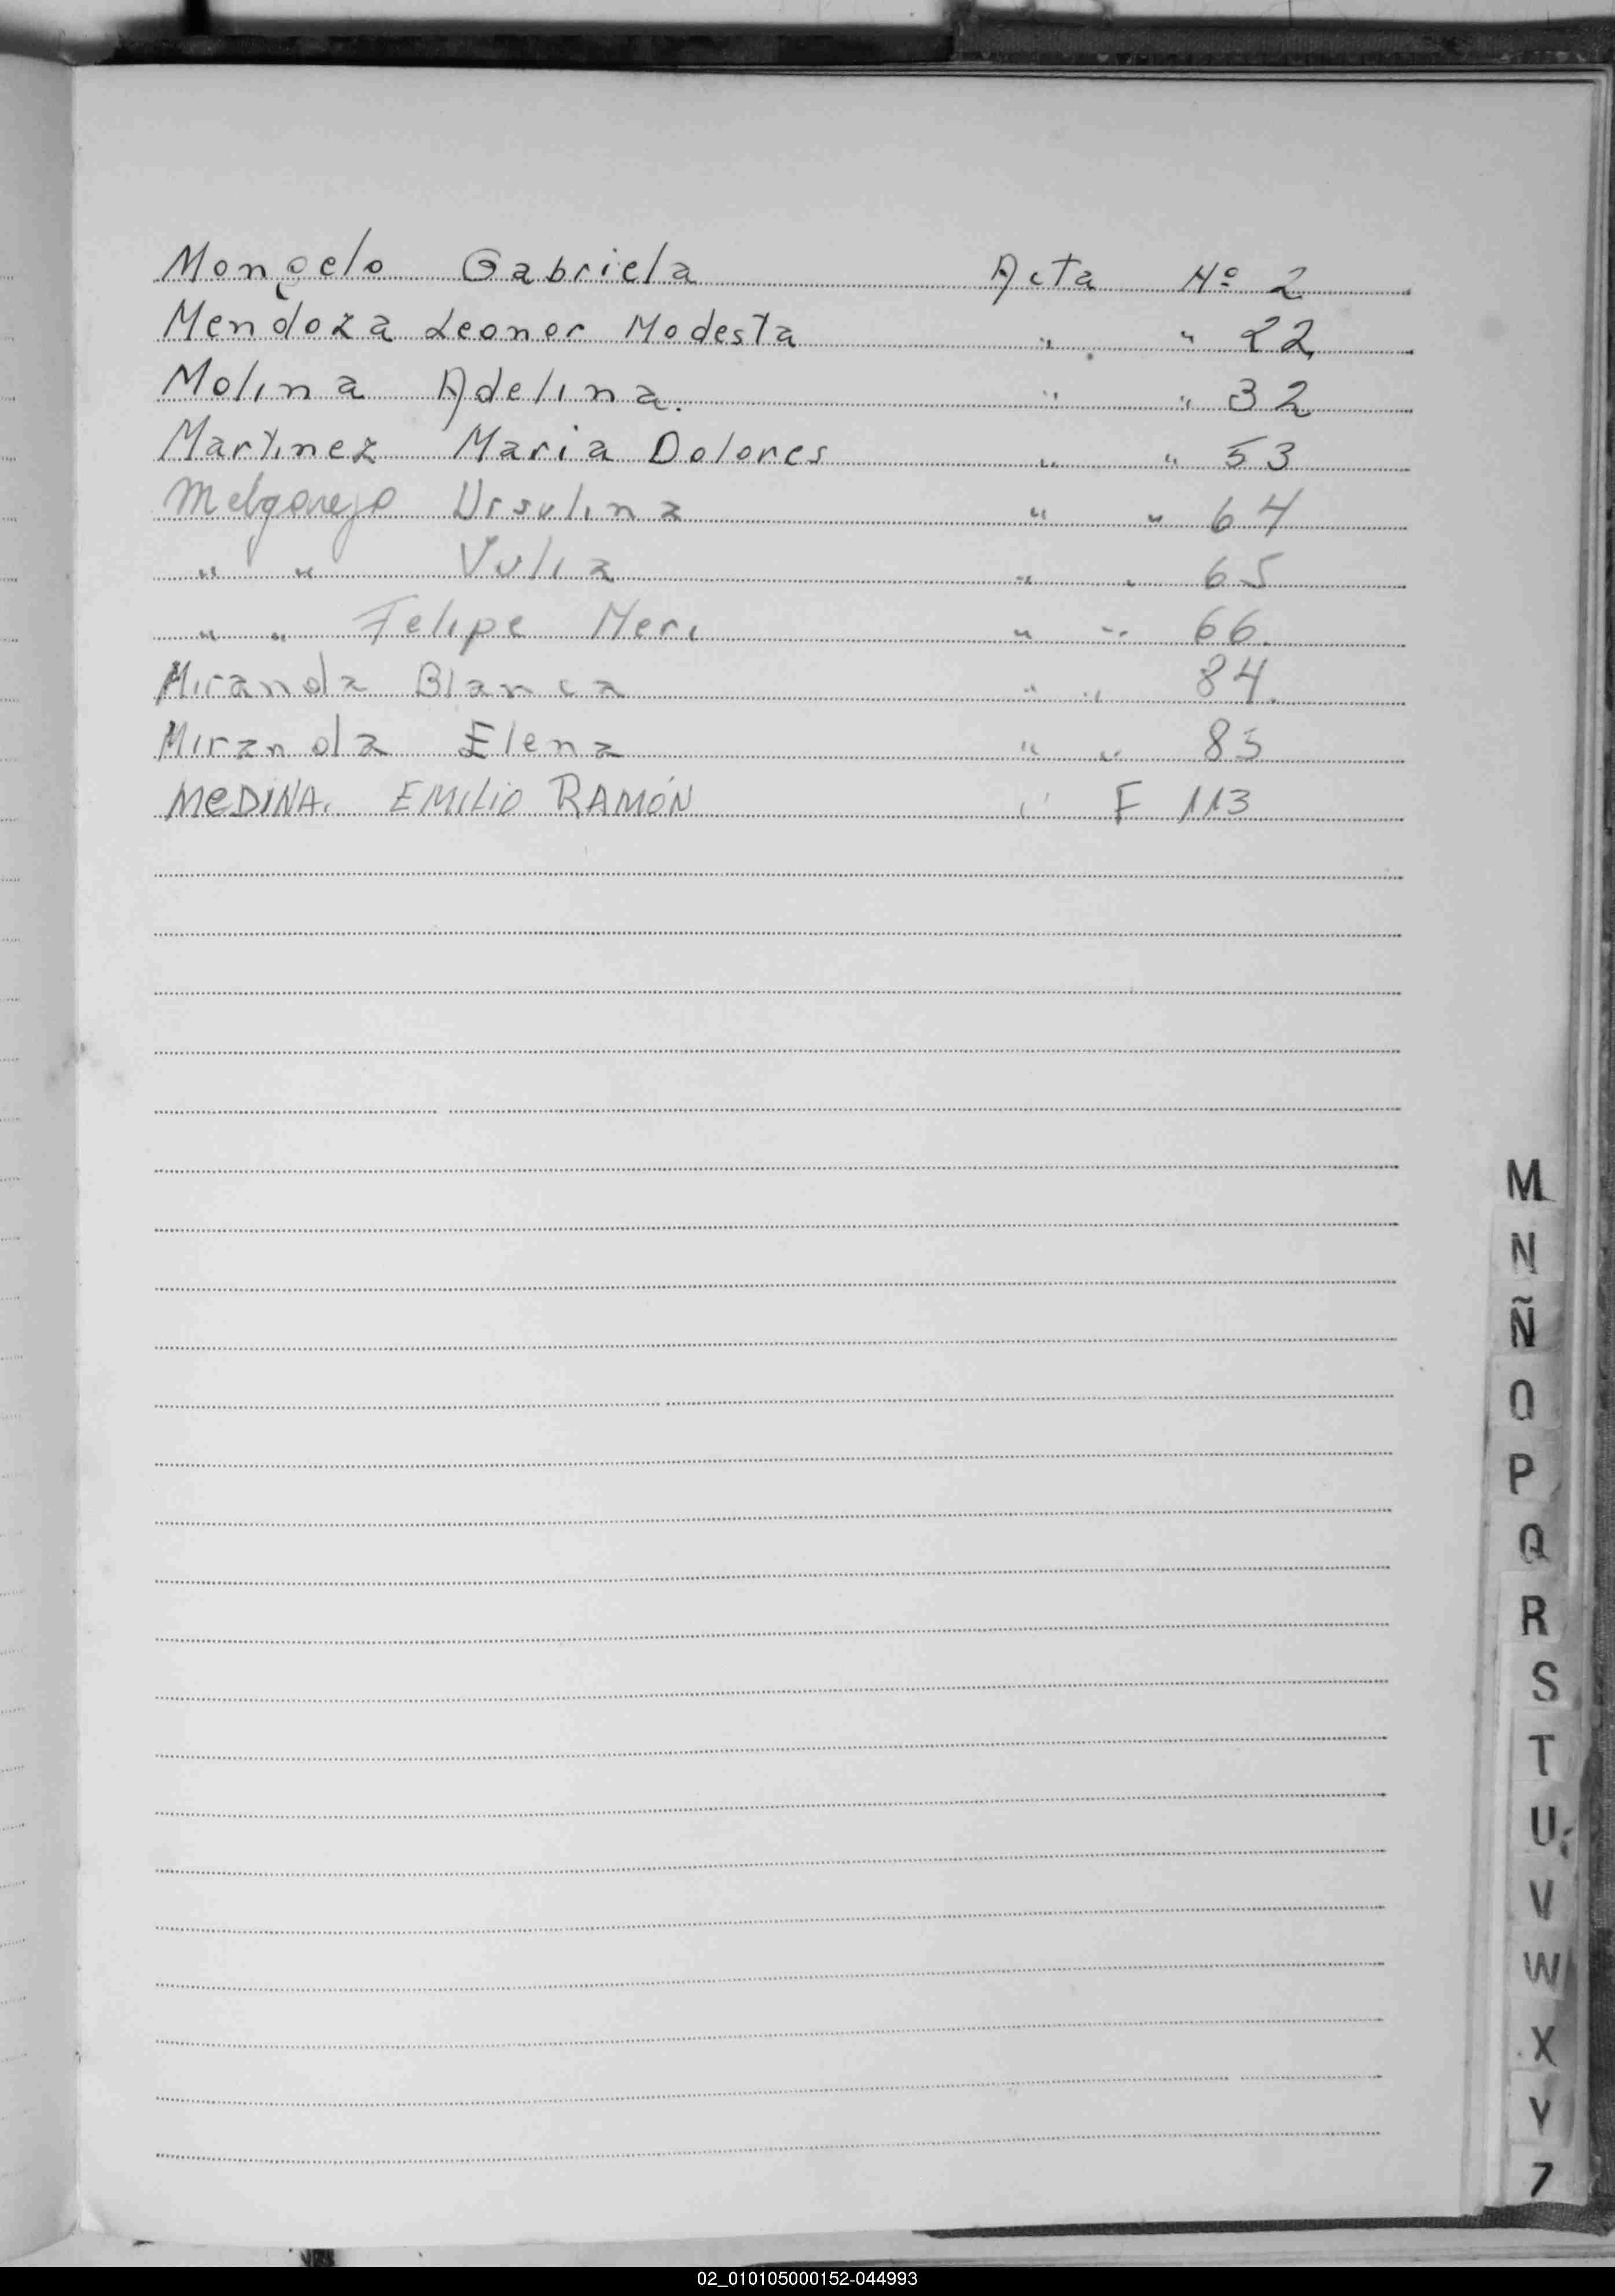 Mongelo Gabriela Acta Nº 2
Mendoza Leonor Modesta " " 22
Molina Adelina. " " 32
Martinez Maria Dolores " " 53
Melgarejo Ursulina " " 64
" " Yulia " " 65
" " Felipe Meri " " 66.
Miranda Blanca " " 84.
Miranda Elena " " 85
MEDINA. EMILIO RAMÓN " F 113
M
N
Ñ
O
P
Q
R
S
T
U
V
W
X
Y
Z
02_010105000152-044993